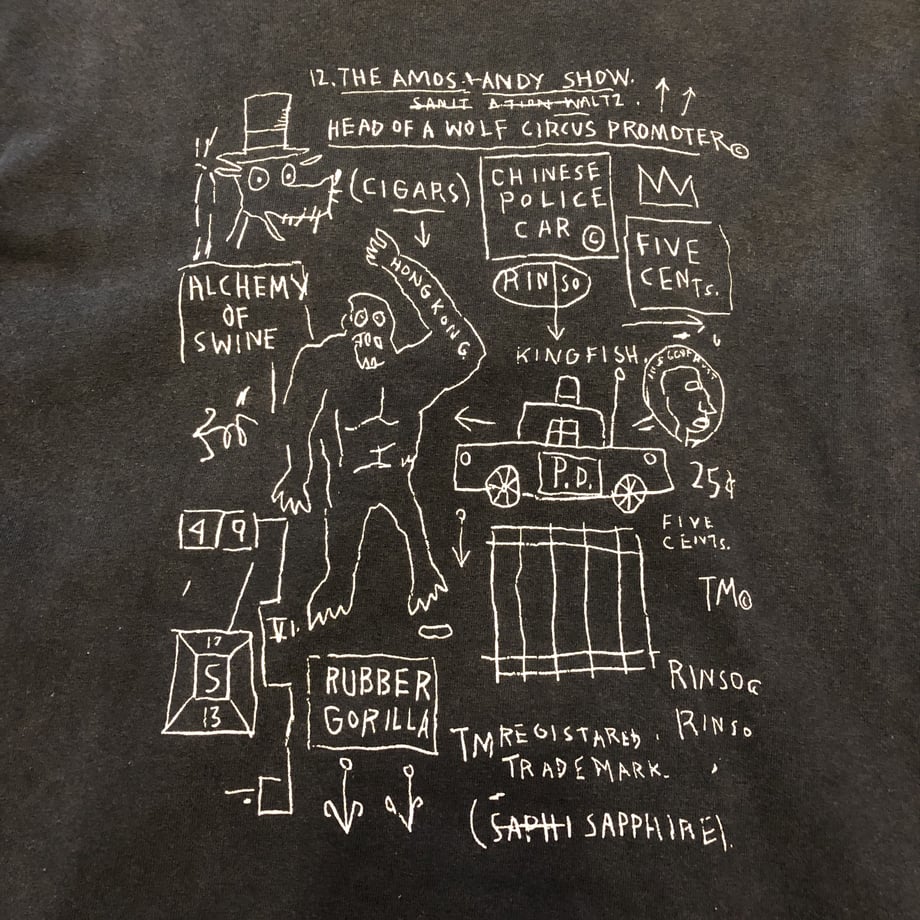 12. THE AMOS + ANDY SHOW.
SANIT ATION WALTZ.
HEAD OF A WOLF CIRCUS PROMOTER ©
(CIGARS)
CHINESE
POLICE
CAR ©
FIVE
CENTS.
RINSO
HONG KONG
ALCHEMY
OF
SWINE
KINGFISH.
P.D.
25¢
FIVE
CENTS.
TM©
49
VI.
17
S
13
RUBBER
GORILLA
RINSO©
RINSO
TM REGISTARED.
TRADEMARK.
(SAPHI SAPPHIRE).